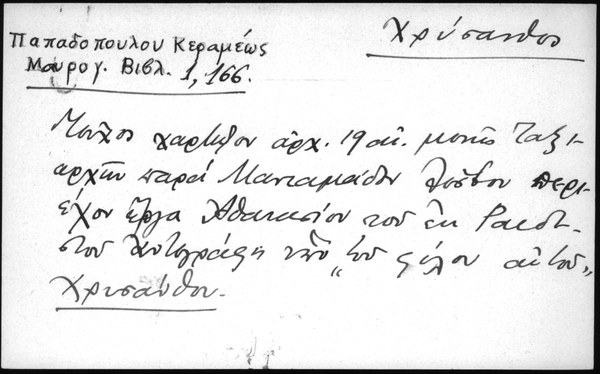 Παπαδοπουλου Κεραμέως
Μαυρογ. Βιβλ. 1, 166.
Χρύσανθος
χαρτῷον ἀρχ. 19 αἰ. μονῆς Ταξι-
αρχῶν παρά Μανταμάδον Λέσβου περι-
έχον ἔργα Ἀθανασίου τοῦ ἐκ Ραιδε-
στοῦ ὑπό „τοῦ φίλου αὐτοῦ„
Χρυσάνθου.